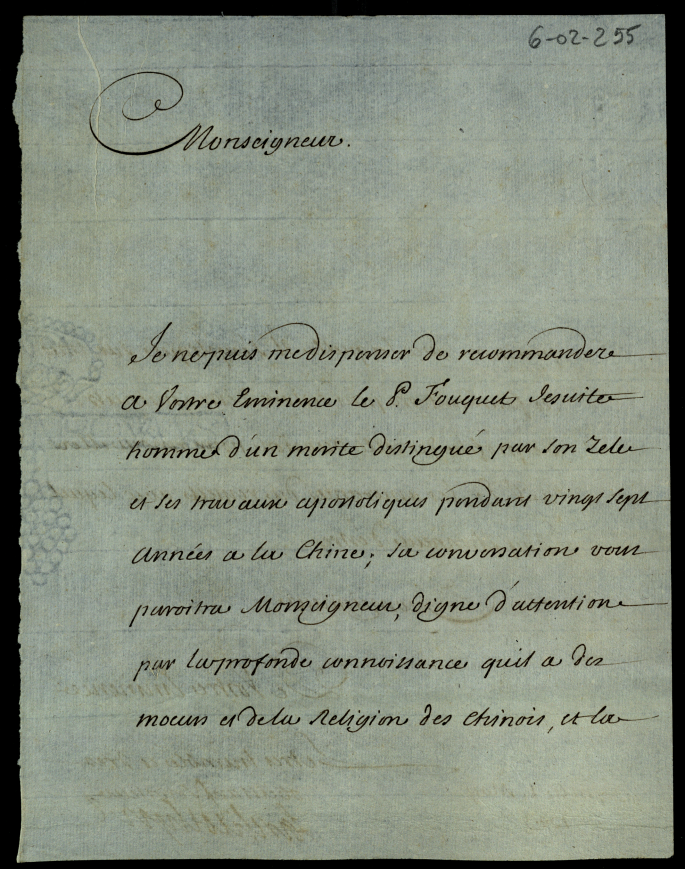 6-02-255
Monseigneur.
Je ne puis me dispenser de recommander
a Vostre Eminence le P. Fouquet Jesuite
homme d'un merite distingué par son zele
et ses travaux apostoliques pendant vingt sept
Années a la Chine; sa conversation vous
paroitra Monseigneur, digne d'attention
par la profonde connoissance quil a des
moeurs et de la Religion des Chinois, et la